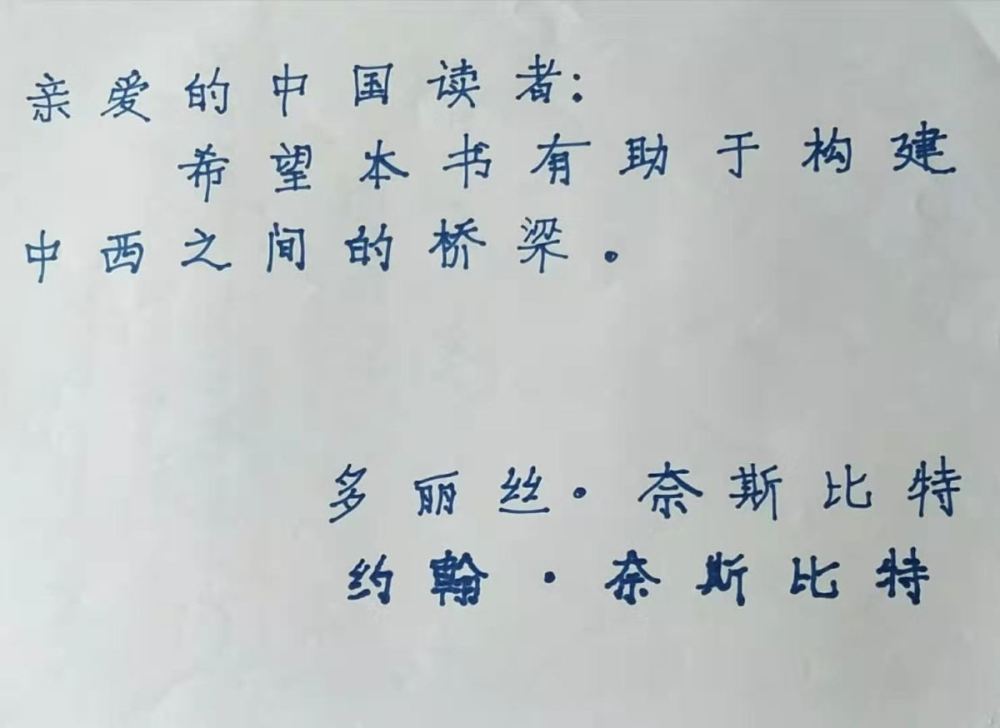 亲爱的中国读者:
希望本书有助于构建
中西之间的桥梁。
多丽丝·奈斯比特
约翰·奈斯比特